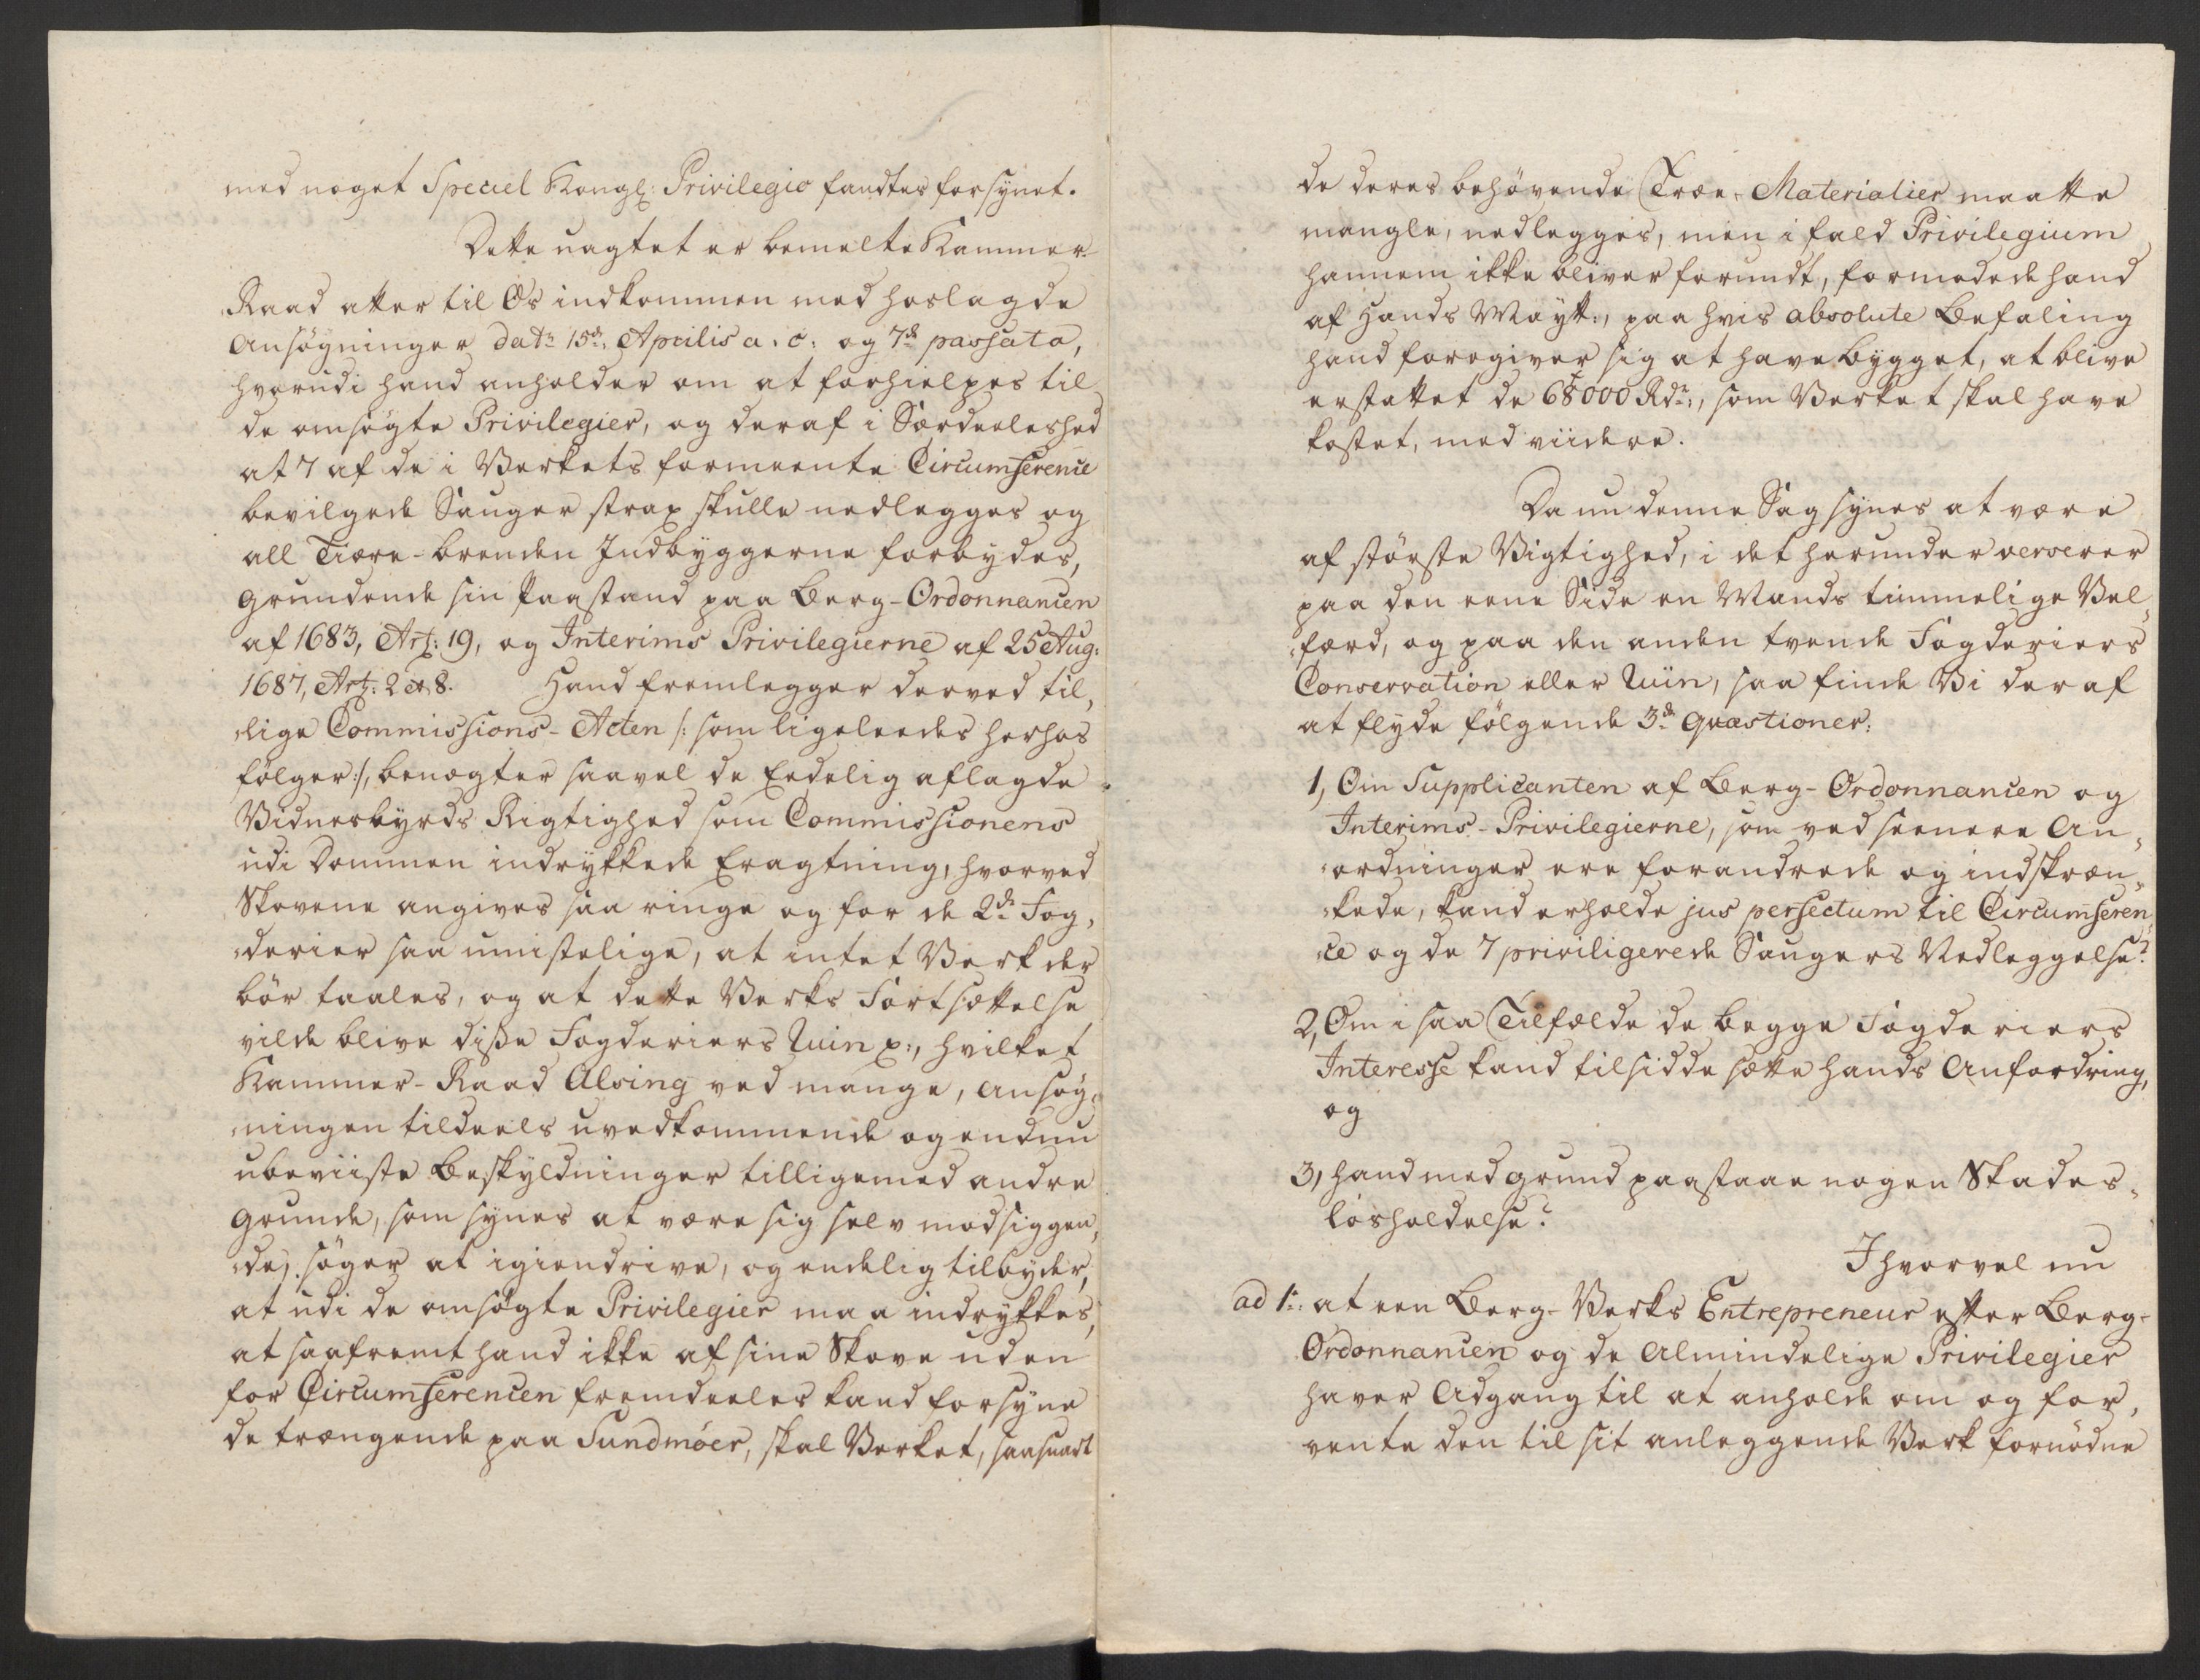 med noget Speciel Kongl: Privilegio fandtes forsÿnet.
Dette uagtet er bemelte Kammer-
Raad atter til Os indkommen med hoslagde
Ansøgninger dat: 15de Aprilis a. c: og 7de passato,
hvorudi hand anholder om at forhielpes til
de omsøgte Privilegier, og deraf i Særdeeleshed
at 7 af de i Verkets formeente Circumference
bevilgede Sauger strax skulle nedlegges og
all Tiære-brenden Indbÿggerne forbydes,
grundende sin Paastand paa Berg-Ordonnancen
af 1683, Art: 19, og Interims Privilegierne af 25 Aug:
1687, Art: 2 et 8. Hand fremlegger derved til,
„lige Commissions-Acten /: som ligeleedes herhos
følger :/, benegter saavel de Eedelig aflagde
Vidnesbyrds Rigtighed som Commissionens
udi Dommen indrykkede Eragtning, hvorved
Skovene angives saa ringe og for de 2de Fog,
„derier saa umistelige, at intet Verk der
bør taales, og at dette Verks Fortsættelse
vilde blive disse Fogderiers Ruin p:, hvilket
Kammer-Raad Alsing ved mange, Ansøg,
„ningen tildeels uvedkommende og endnu
ubeviiste Beskyldninger tilligemed andre
Grunde, som synes at være sig selv modsiggen,
„de, søger at igiendrive, og endelig tilbyder,
at udi de omsøgte Privilegier maa indrykkes,
at saafremt hand ikke af sine Skove uden
for Circumferencen fremdeeles kand forsyne
de trængende paa Sundmöer, skal Verket, saasnart
de deres behøvende Træ-Materialier maatte
mangle, nedlegges, men i fald Privilegium
hannem ikke bliver forundt, formodede hand
af Hands Mayst:, paa hvis absolute Befaling
hand foregiver sig at have bÿgget, at blive
erstattet de 68000 Rdr:, som Verket skal have
kostet, med viidere.
Da nu denne Sag synes at være
af største Vigtighed, i det herunder verserer
paa den eene Side en Mands timmelige Vel,
„færd, og paa den anden tvende Fogderiers
Conservation eller Ruin, saa finde Vi deraf
at flyde følgende 3de Qvæstioner:
1, Om Supplicanten af Berg-Ordonnancen og
Interims-Privilegierne, som ved seenere An,
„ordninger ere forandrede og indskræn,
„kede, kand erholde jus perfectum til Circumferen
„ce og de 7 priviligerede Saugers Nedleggelse?
2, Om i saa Tilfælde de begge Fogderiers
Interesse kand tilsidde sætte hands Anfordring,
og
3, hand med Grund paastaae nogen Skades,
løsholdelse?
Ihvorvel nu
ad 1: at een Berg-Verks Entrepreneur efter Berg-
Ordonnancen og de Almindelige Privilegier
haver Adgang til at anholde om og for,
vente den til sit anleggende Verk fornødne